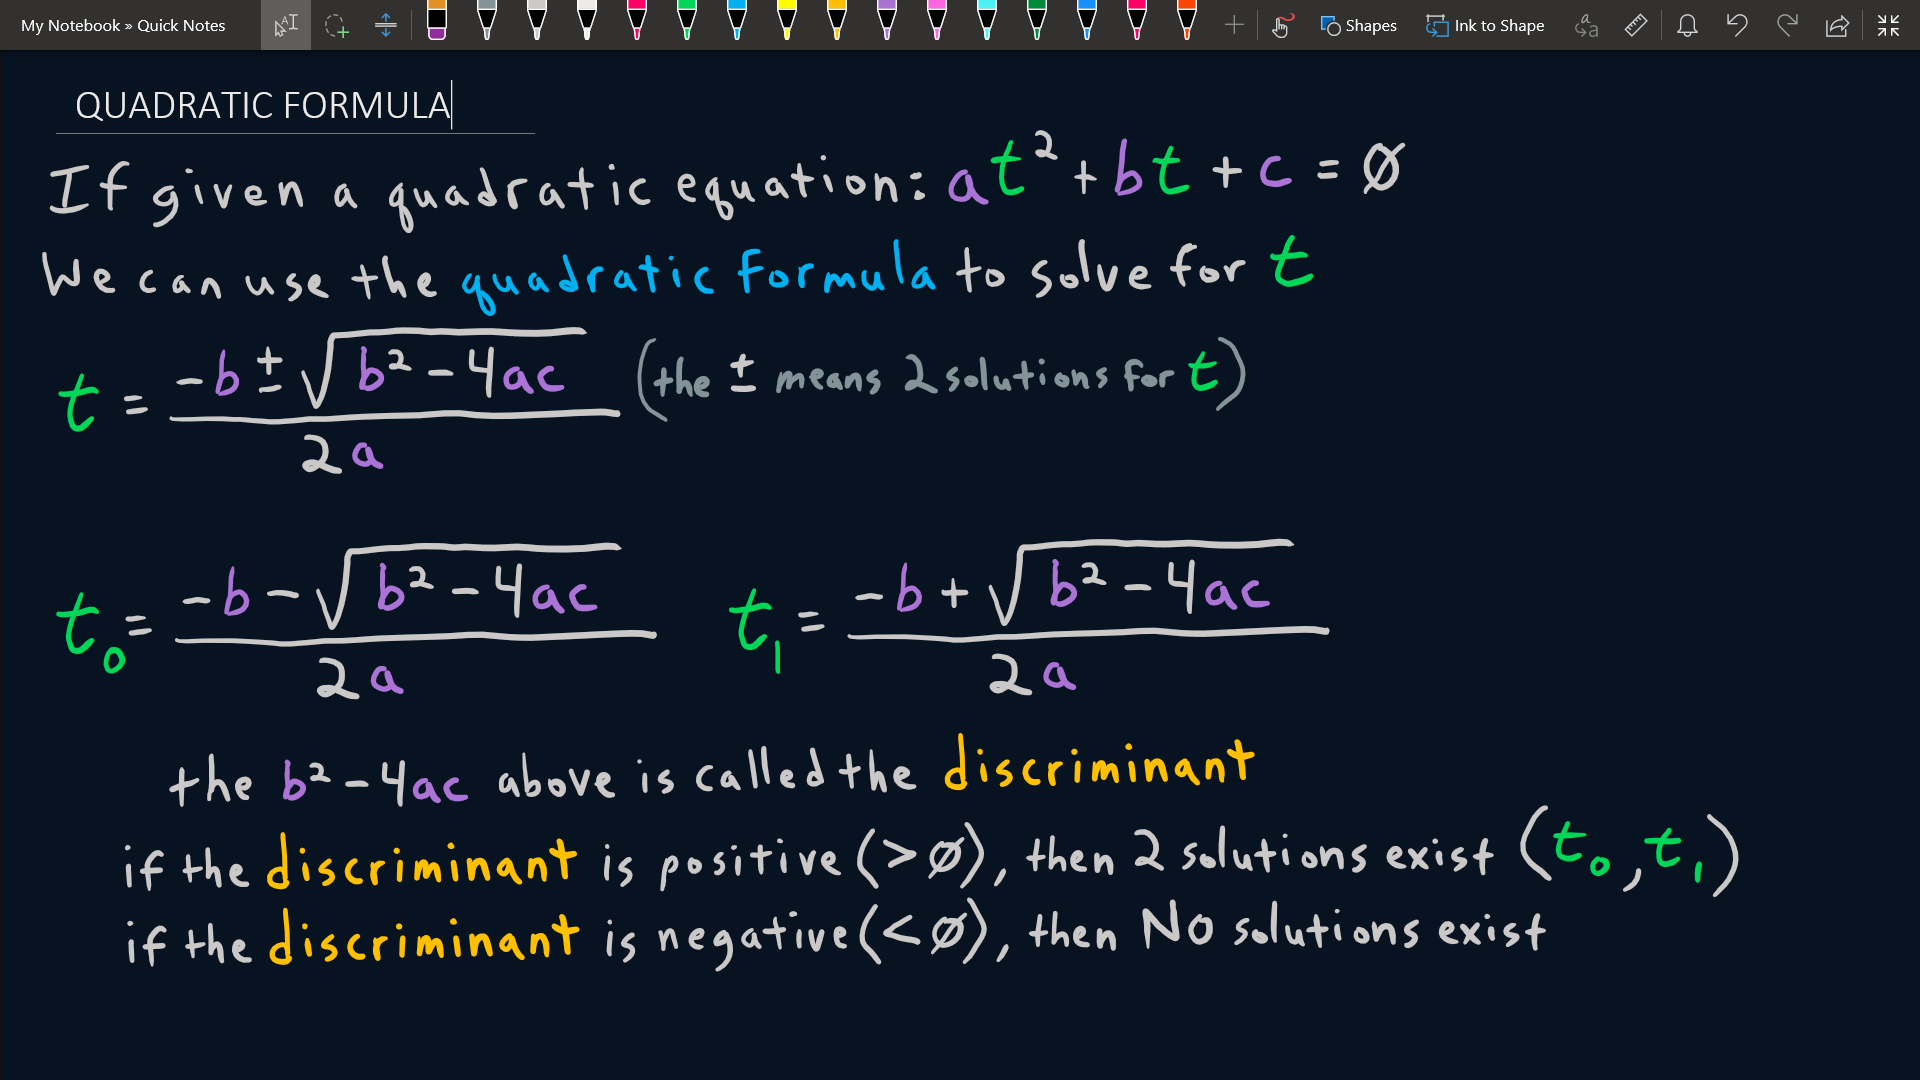 My Notebook » Quick Notes Shapes Ink to Shape
QUADRATIC FORMULA
If given a quadratic equation: at² + bt + c = Ø
We can use the quadratic formula to solve for t
t = (-b ± √(b² - 4ac)) / 2a (the ± means 2 solutions for t)
t₀ = (-b - √(b² - 4ac)) / 2a t₁ = (-b + √(b² - 4ac)) / 2a
the b² - 4ac above is called the discriminant
if the discriminant is positive (> Ø), then 2 solutions exist (t₀, t₁)
if the discriminant is negative (< Ø), then NO solutions exist